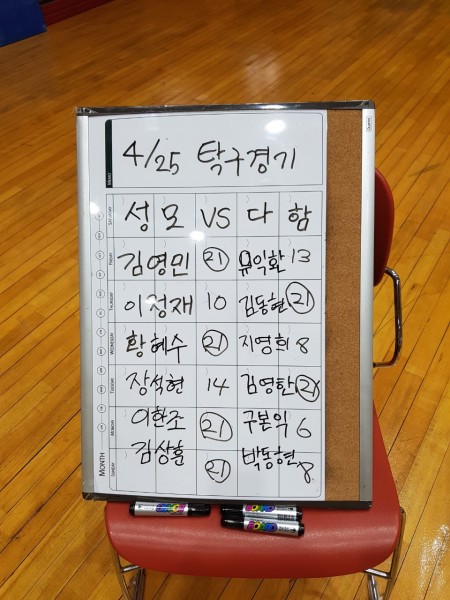 4/25 탁구경기
성모 VS 다함
김영민 21 유익환 13
이정재 10 김동현 21
황혜수 21 지영희 8
장석현 14 김영한 21
이환조 21 구본익 6
김상훈 21 박동현 8
MONTH
SUNDAY
MONDAY
TUESDAY
WEDNESDAY
THURSDAY
FRIDAY